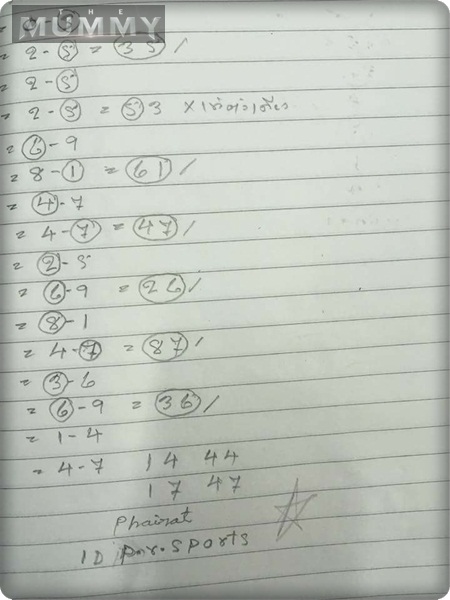 THE
MUMMY
= 2 - 5 = 35 /
= 2 - 5
= 2 - 5 = 53 ×
= 6 - 9
= 8 - 1 = 61 /
= 4 - 7
= 4 - 7 = 47 /
= 2 - 5
= 6 - 9 = 26 /
= 8 - 1
= 4 - 7 = 87 /
= 3 - 6
= 6 - 9 = 36 /
= 1 - 4
= 4 - 7 14 44
17 47
Phairat
ID SPORTS